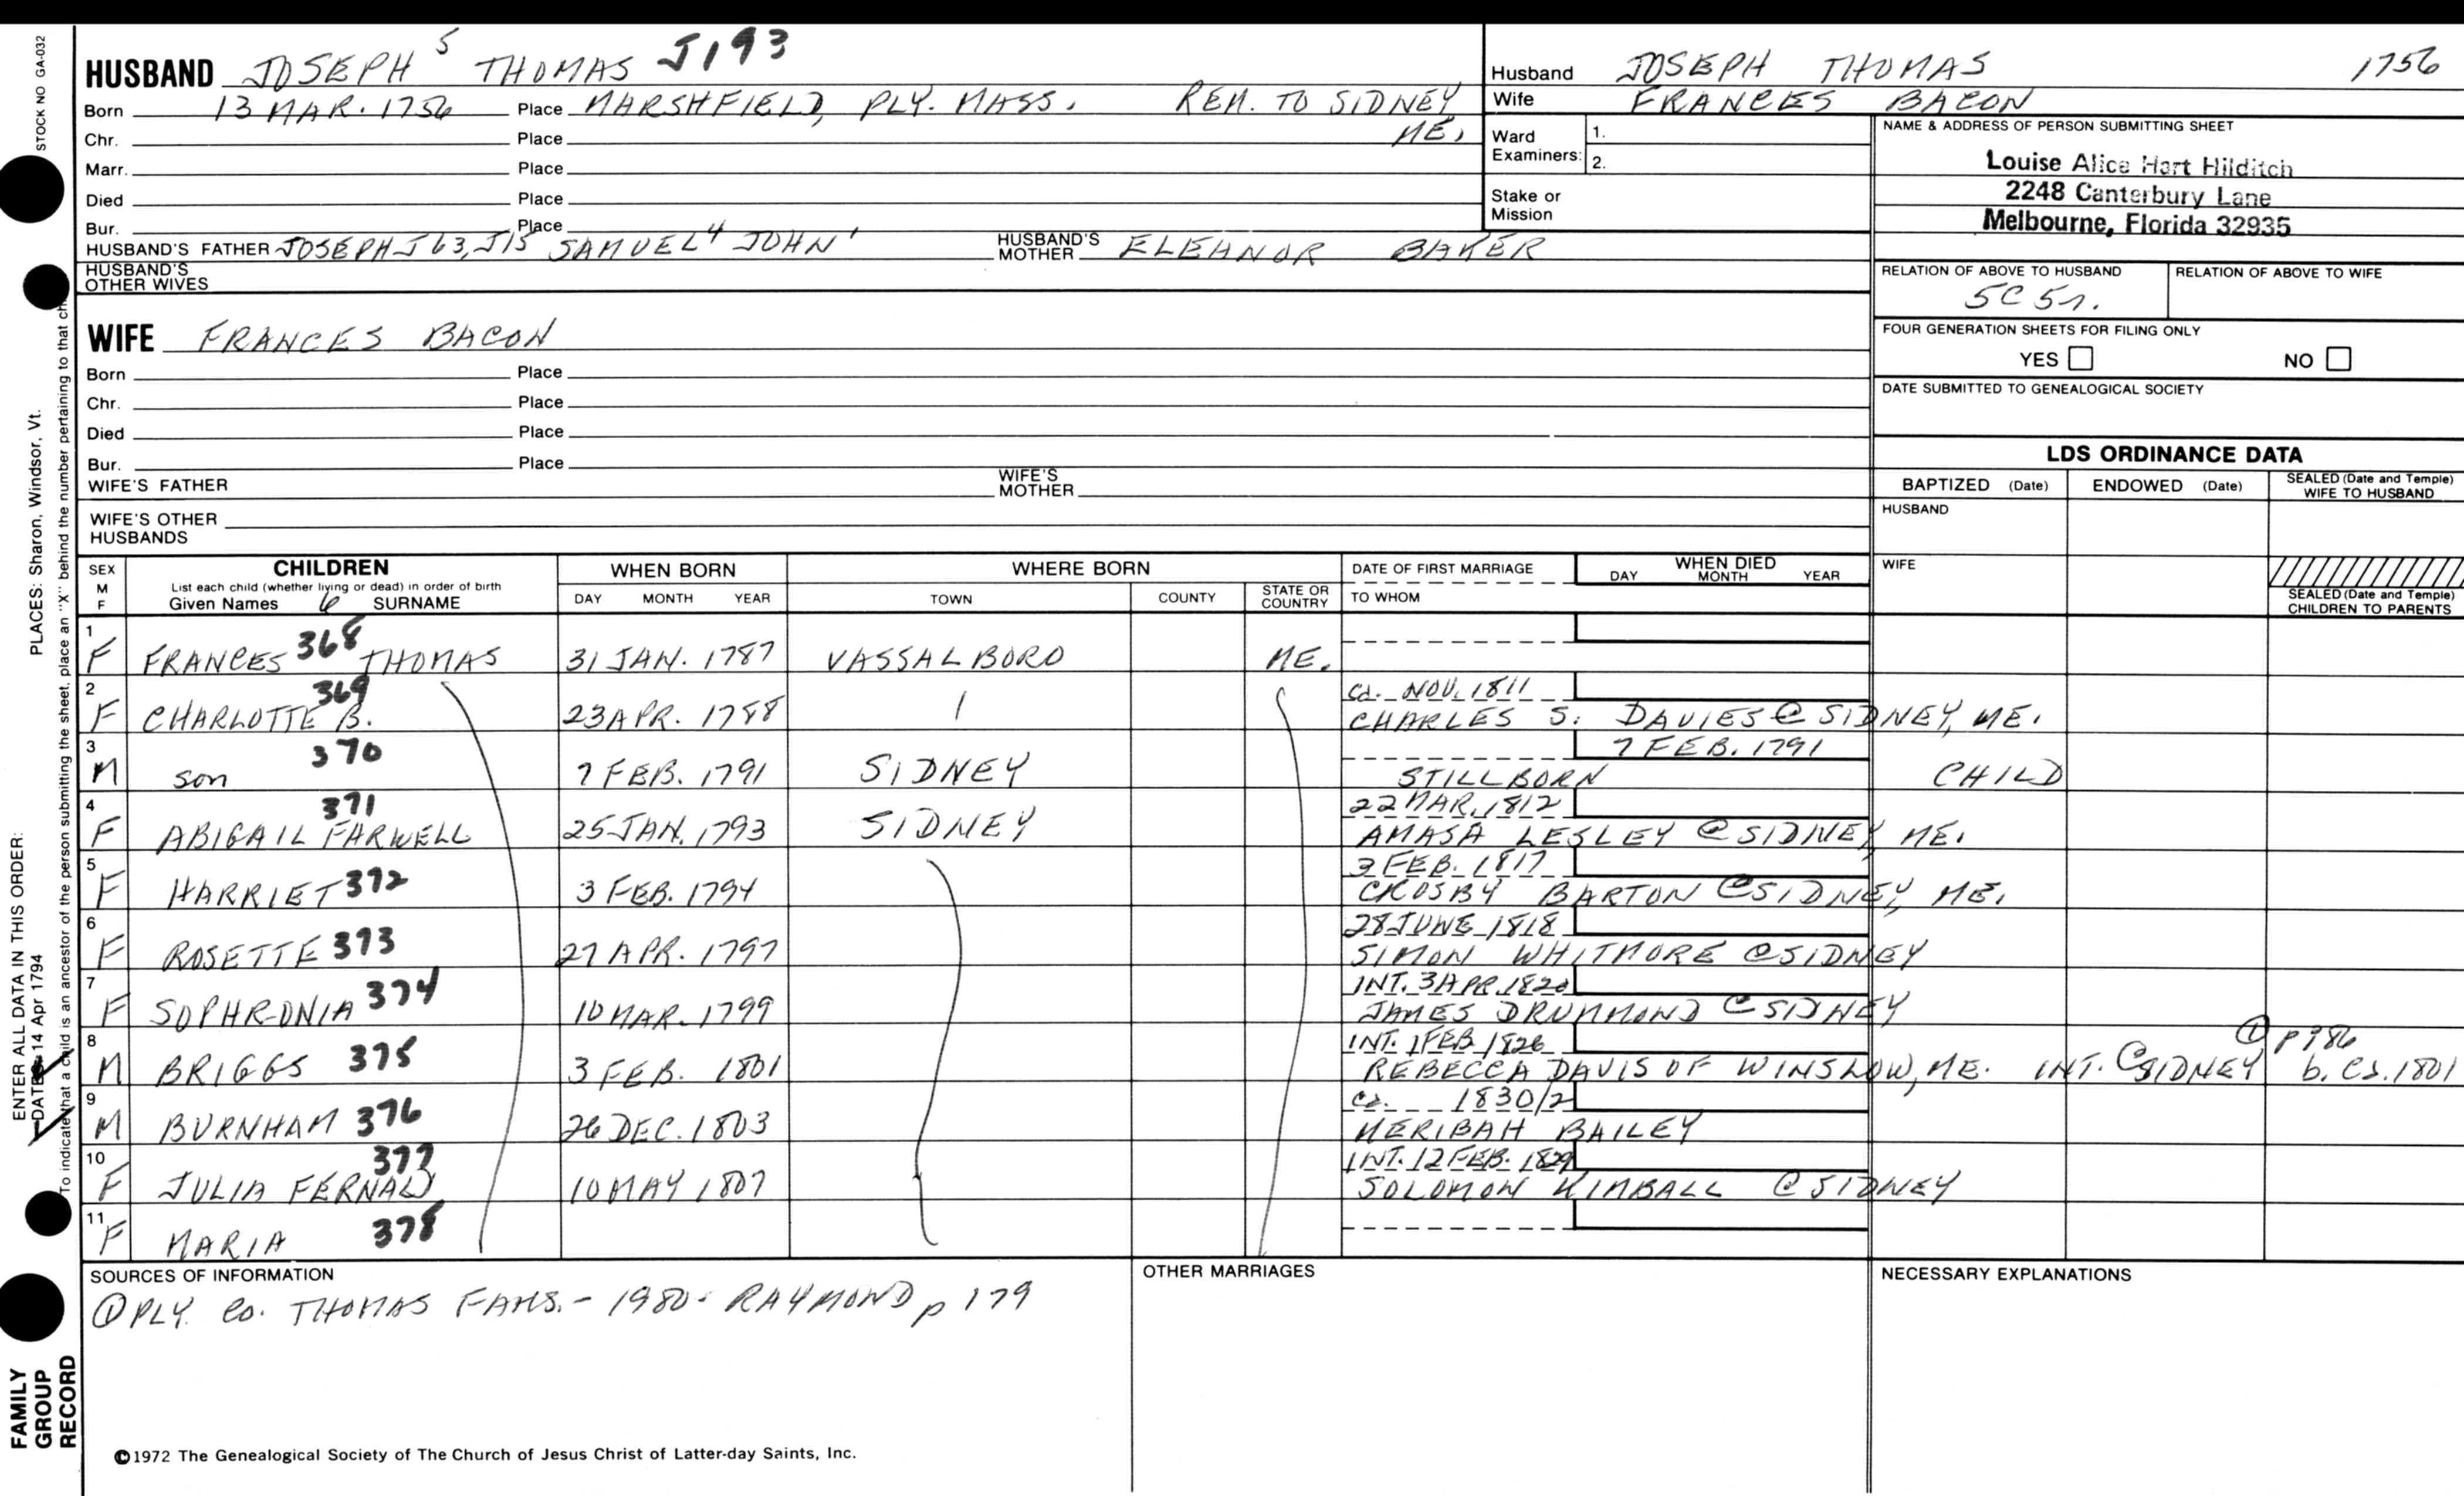 STOCK NO GA-032
HUSBAND JOSEPH 5 THOMAS J193
Born 13 MAR. 1756 Place MARSHFIELD, PLY. MASS. REM. TO SIDNEY
ME.
Chr. Place
Marr. Place
Died Place
Bur. Place
HUSBAND'S FATHER JOSEPH J63, J15 SAMUEL 4 JOHN 1 HUSBAND'S MOTHER ELEANOR BAKER
HUSBAND'S OTHER WIVES
Husband JOSEPH THOMAS 1756
Wife FRANCES BACON
Ward Examiners: 1.
2.
Stake or Mission
NAME & ADDRESS OF PERSON SUBMITTING SHEET
Louise Alice Hart Hilditch
2248 Canterbury Lane
Melbourne, Florida 32935
RELATION OF ABOVE TO HUSBAND RELATION OF ABOVE TO WIFE
5C 5r.
FOUR GENERATION SHEETS FOR FILING ONLY
YES NO
DATE SUBMITTED TO GENEALOGICAL SOCIETY
WIFE FRANCES BACON
Born Place
Chr. Place
Died Place
Bur. Place
WIFE'S FATHER WIFE'S MOTHER
WIFE'S OTHER HUSBANDS
LDS ORDINANCE DATA
BAPTIZED (Date) ENDOWED (Date) SEALED (Date and Temple) WIFE TO HUSBAND
HUSBAND
WIFE
SEALED (Date and Temple) CHILDREN TO PARENTS
SEX M F CHILDREN WHEN BORN WHERE BORN DATE OF FIRST MARRIAGE WHEN DIED
List each child (whether living or dead) in order of birth
Given Names 6 SURNAME DAY MONTH YEAR TOWN COUNTY STATE OR COUNTRY TO WHOM DAY MONTH YEAR
1 F FRANCES 368 THOMAS 31 JAN. 1787 VASSALBORO ME.
2 F CHARLOTTE B. 369 23 APR. 1788 ca. NOV. 1811
CHARLES S. DAVIES @ SIDNEY, ME.
3 M son 370 7 FEB. 1791 SIDNEY 7 FEB. 1791
STILLBORN CHILD
4 F ABIGAIL FARWELL 371 25 JAN. 1793 SIDNEY 22 MAR. 1812
AMASA LESLEY @ SIDNEY, ME.
5 F HARRIET 372 3 FEB. 1794 3 FEB. 1817
CROSBY BARTON @ SIDNEY, ME.
6 F ROSETTE 373 27 APR. 1797 28 JUNE 1818
SIMON WHITMORE @ SIDNEY
7 F SOPHRONIA 374 10 MAR. 1799 INT. 3 APR. 1820
JAMES DRUMMOND @ SIDNEY
8 M BRIGGS 375 3 FEB. 1801 INT. 1 FEB 1826 ① p 986
REBECCA DAVIS OF WINSLOW, ME. INT. @ SIDNEY b. ca. 1801
9 M BURNHAM 376 26 DEC. 1803 ca. 1830/2
MERIBAH BAILEY
10 F JULIA FERNALD 377 10 MAY 1807 INT. 12 FEB. 1829
SOLOMON KIMBALL @ SIDNEY
11 F MARIA 378
SOURCES OF INFORMATION OTHER MARRIAGES NECESSARY EXPLANATIONS
① PLY. CO. THOMAS FAMS. - 1980 - RAYMOND p 179
©1972 The Genealogical Society of The Church of Jesus Christ of Latter-day Saints, Inc.
ENTER ALL DATA IN THIS ORDER:
DATES 14 Apr 1794
PLACES: Sharon, Windsor, Vt.
To indicate that a child is an ancestor of the person submitting the sheet, place an "X" behind the number pertaining to that
FAMILY
GROUP
RECORD